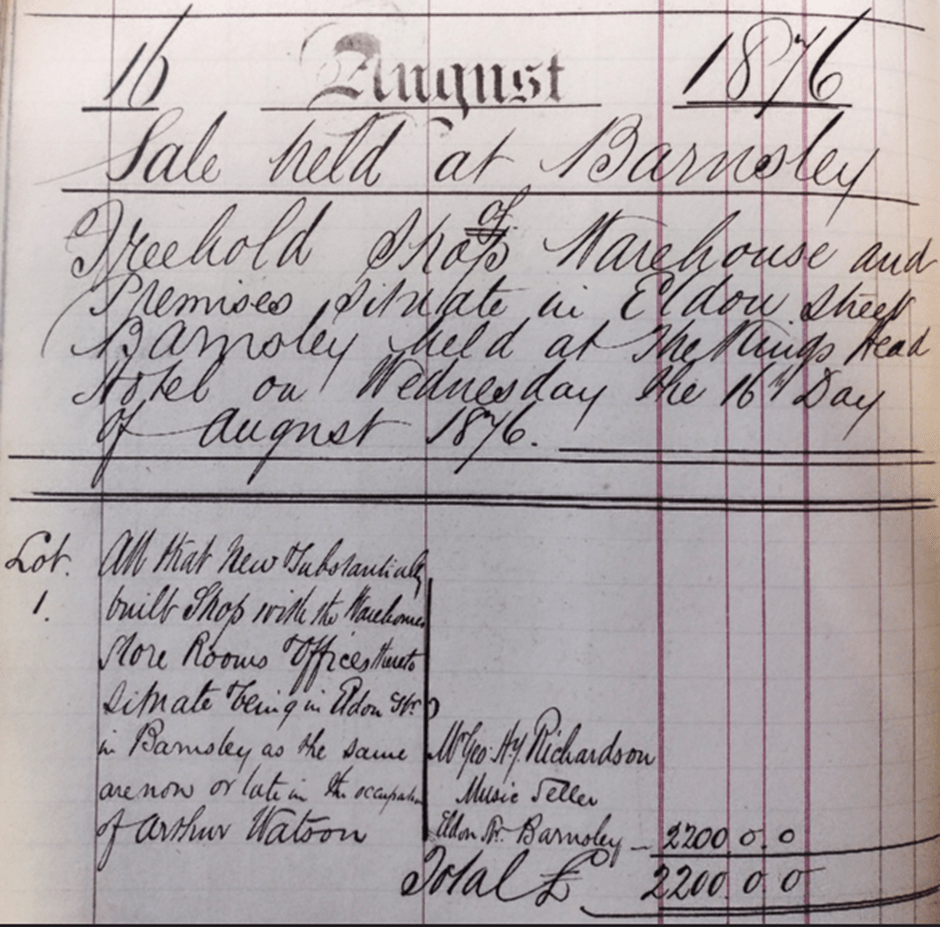 16 August 1876
Sale held at Barnsley
of
Freehold Shop Warehouse and
Premises situate in Eldon Street
Barnsley held at the Kings Head
Hotel on Wednesday the 16th Day
of August 1876.
Lot. All that New Substantially
1. built Shop with the Warehouses
Store Rooms Offices thereto
situate & being in Eldon Str.
in Barnsley as the same
are now or late in the occupation
of Arthur Watson
Mr Geo. Hy. Richardson
Music Seller
Eldon St. Barnsley — 2200. 0. 0
Total £ 2200. 0 0